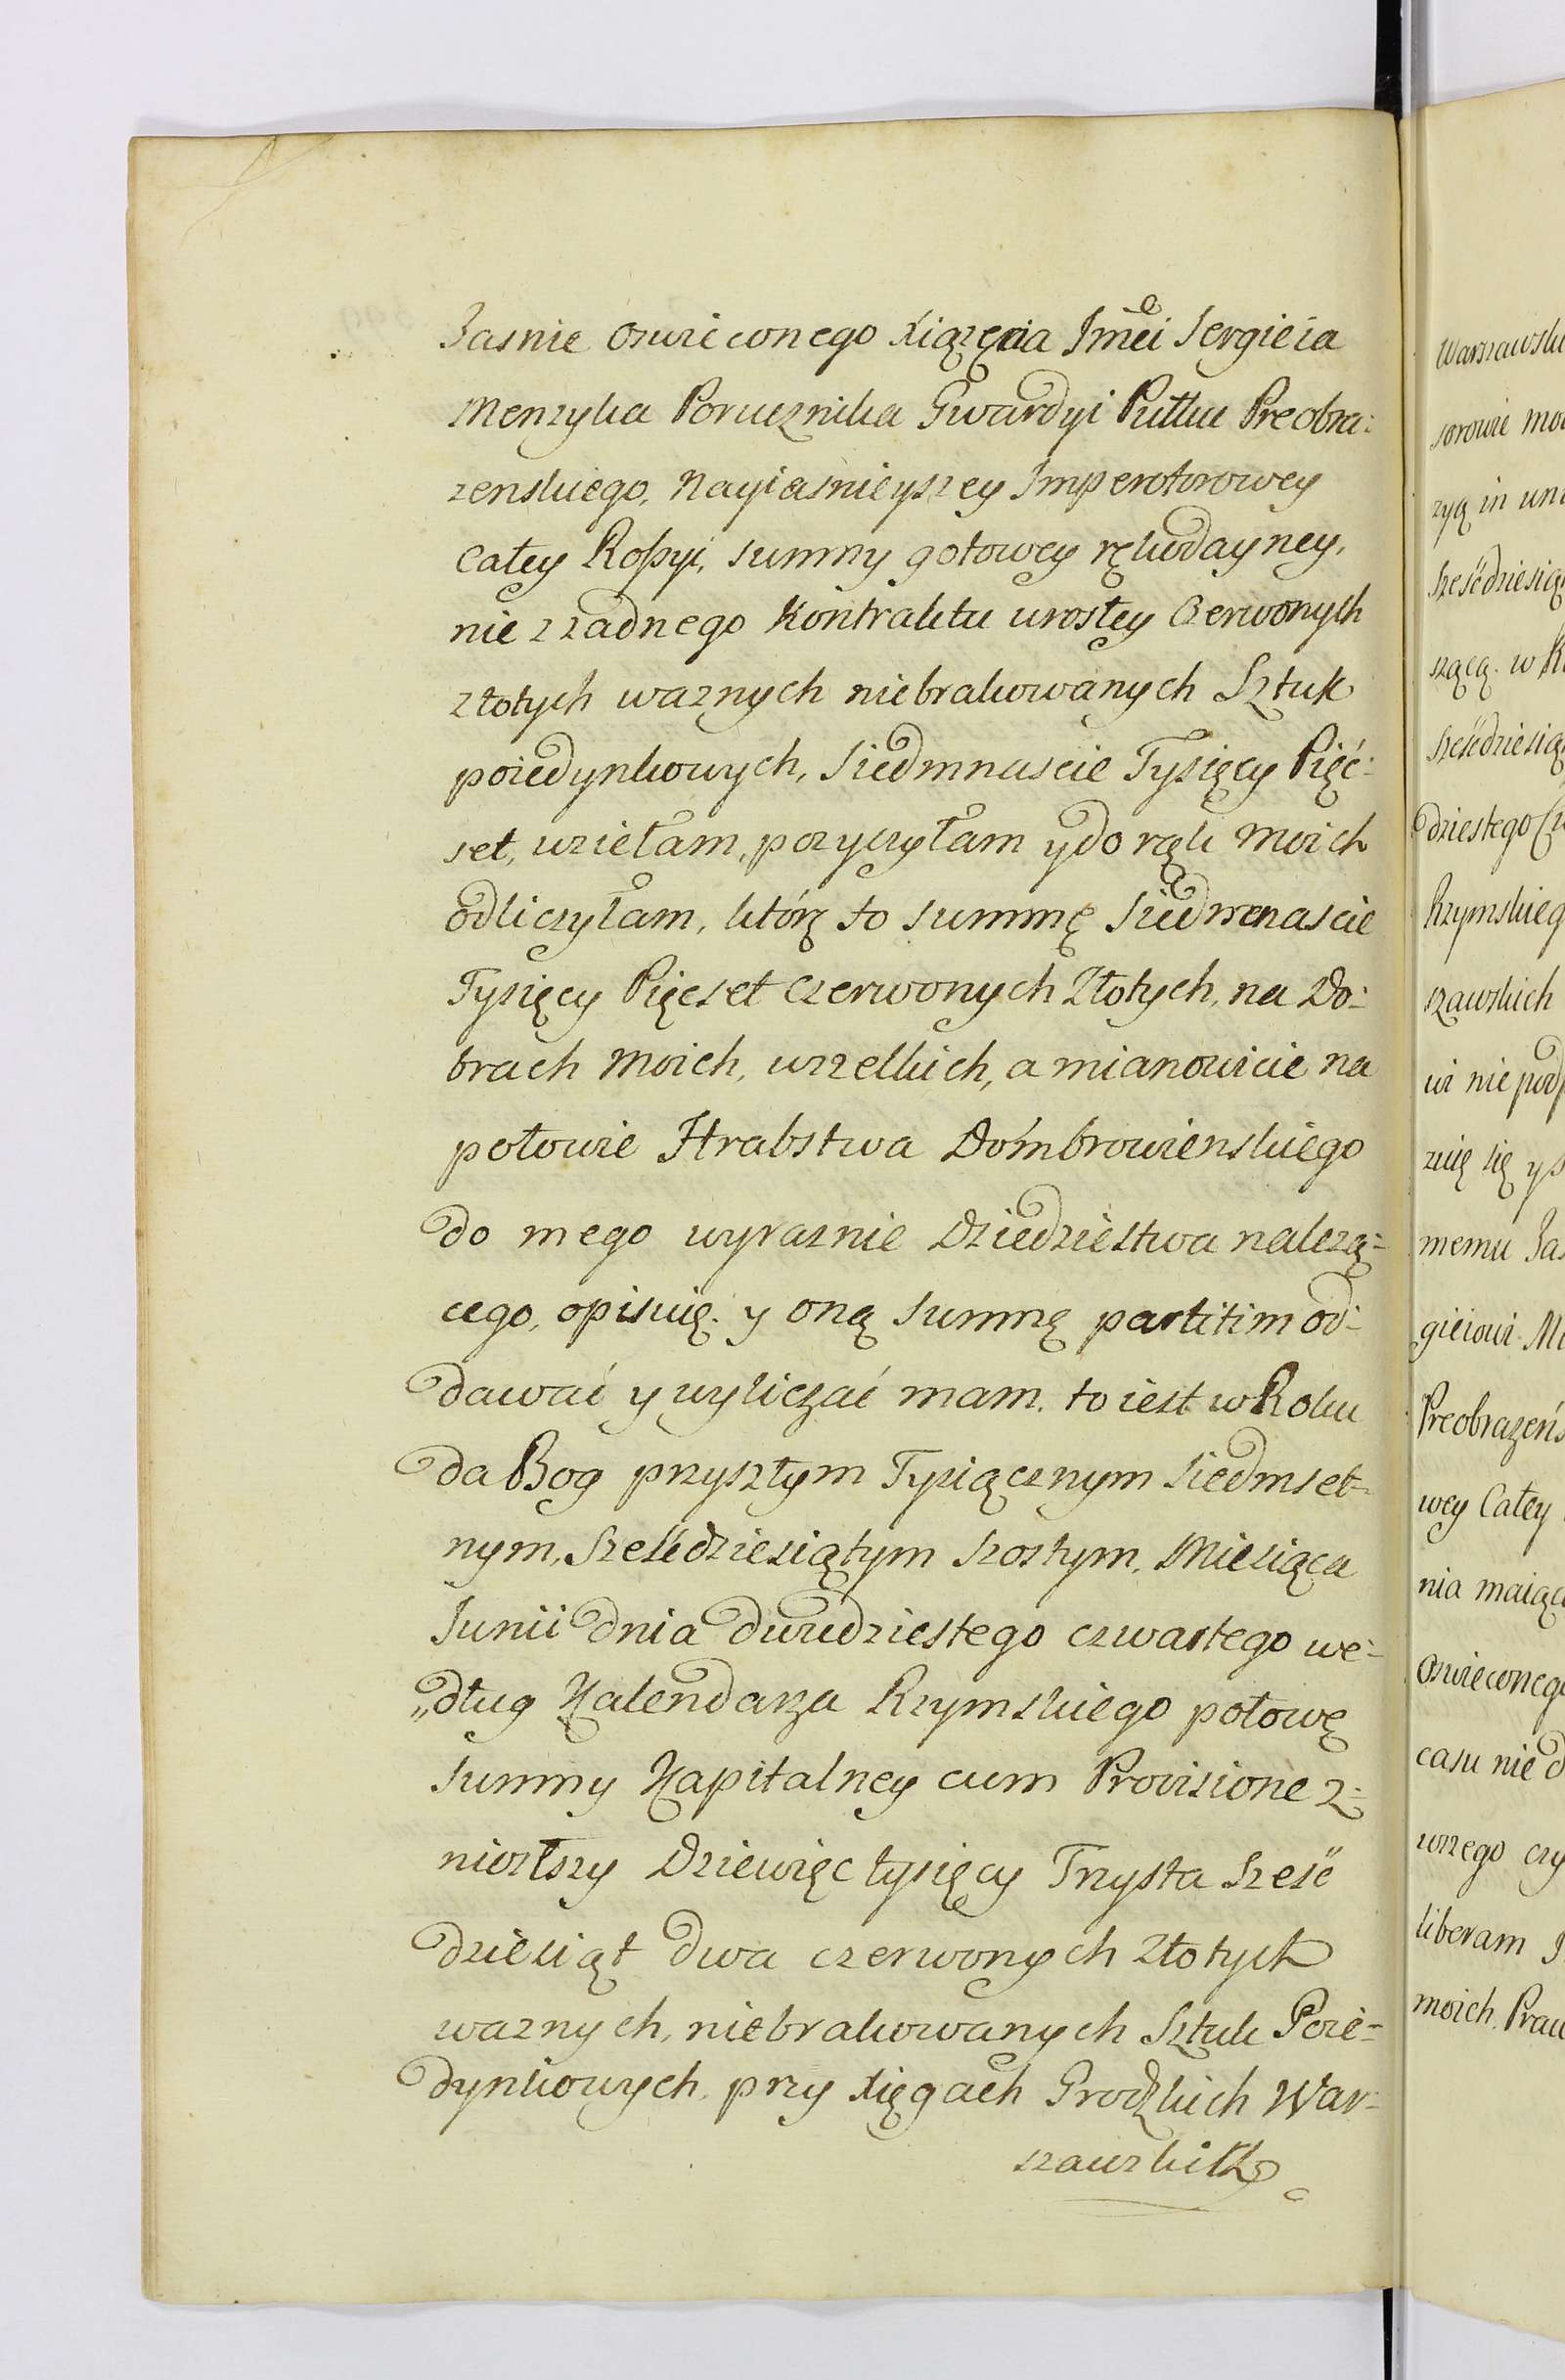 Jasnie oswieconego Xiązęcia Jmci Sergieia
Menzyka Porucznika Gwardyi Pułku Preobra:
zenskiego, Nayiasnieyszey Imperotorowey
Całey Rossyi, summy gotowey rękodayney,
nie zzadnego Kontraktu urosłey Czerwonych
złotych waznych niebrakowanych Sztuk
poiedynkowych, Siedmnascie Tysięcy Pięć:
set, wziełam, pozyczyłam y do rąk moich
odliczyłam, którą to summę Siedmnascie
Tysięcy Pięcset Czerwonych Złotych, na Do:
brach moich, wszelkich, a mianowicie na
połowie Hrabstwa Dombrowienskiego
do mego wyraznie Dziedzictwa nalezą:
cego, opisuię. y oną summę partitim od:
dawać y wyliczać mam. to iest w Roku
da Bog przyszłym Tysiącznym Siedmset:
nym, Sześćdziesiątym szostym, Miesiąca
Junii dnia dwudziestego czwartego we:
„dług Kalendarza Rzymskiego połowę
summy Kapitalney cum Provisione z:
niozszy Dziewięc tysięcy Trzysta Sześć
dziesiąt dwa czerwonych złotych
waznych, niebrakowanych Sztuk Poie:
dynkowych, przy Xięgach Grodzkich War:
szawskich
Warszawski
sorowie
zyą in
Sześćdziesią
szącą. w
Sześćdziesią
dziestego
Rzymskieg
szawskich
wi nie
zuię się
memu Jas
gieiowi
Preobrazeńs
wey Całey
nia maiąc
Oswieconego
casu nie d
liberam
moich.